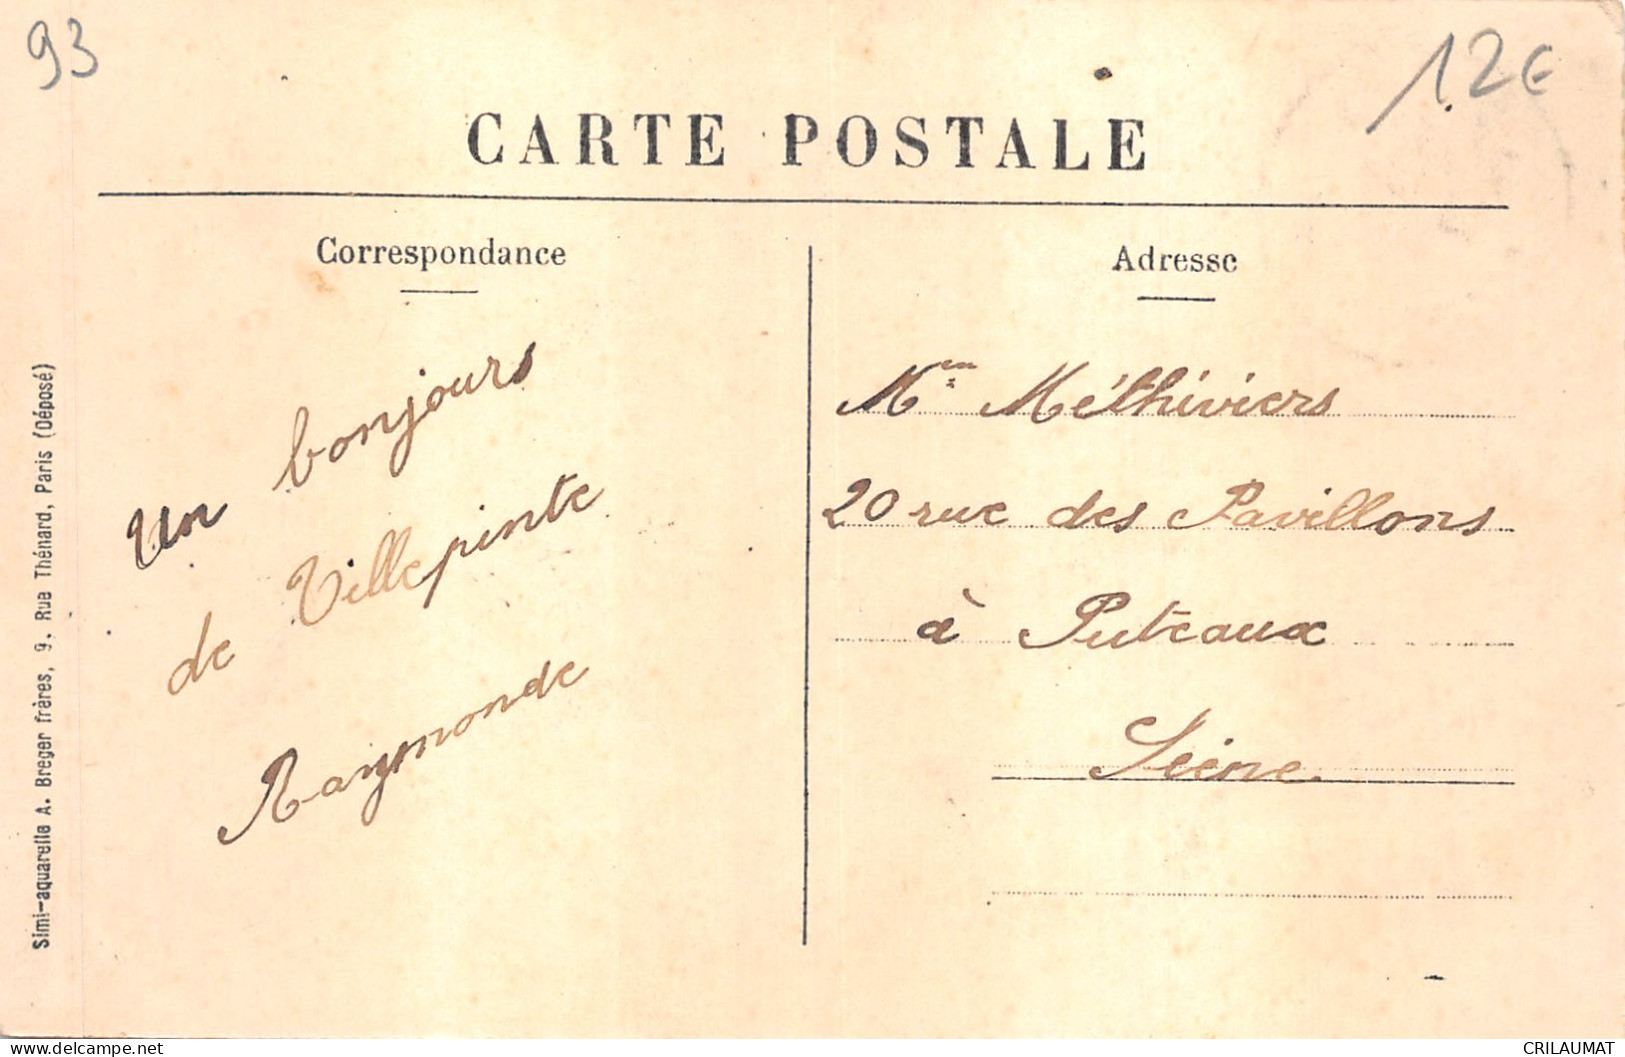 93
12€
CARTE POSTALE
Correspondance
Adresse
Un bonjours
de Villepinte
Raymonde
Méthiviers
20 rue des Pavillons
à Puteaux
Seine.
Simi-aquarelle A. Breger frères, 9, Rue Thénard, Paris (Déposé)
delcampe.net
CRILAUMAT